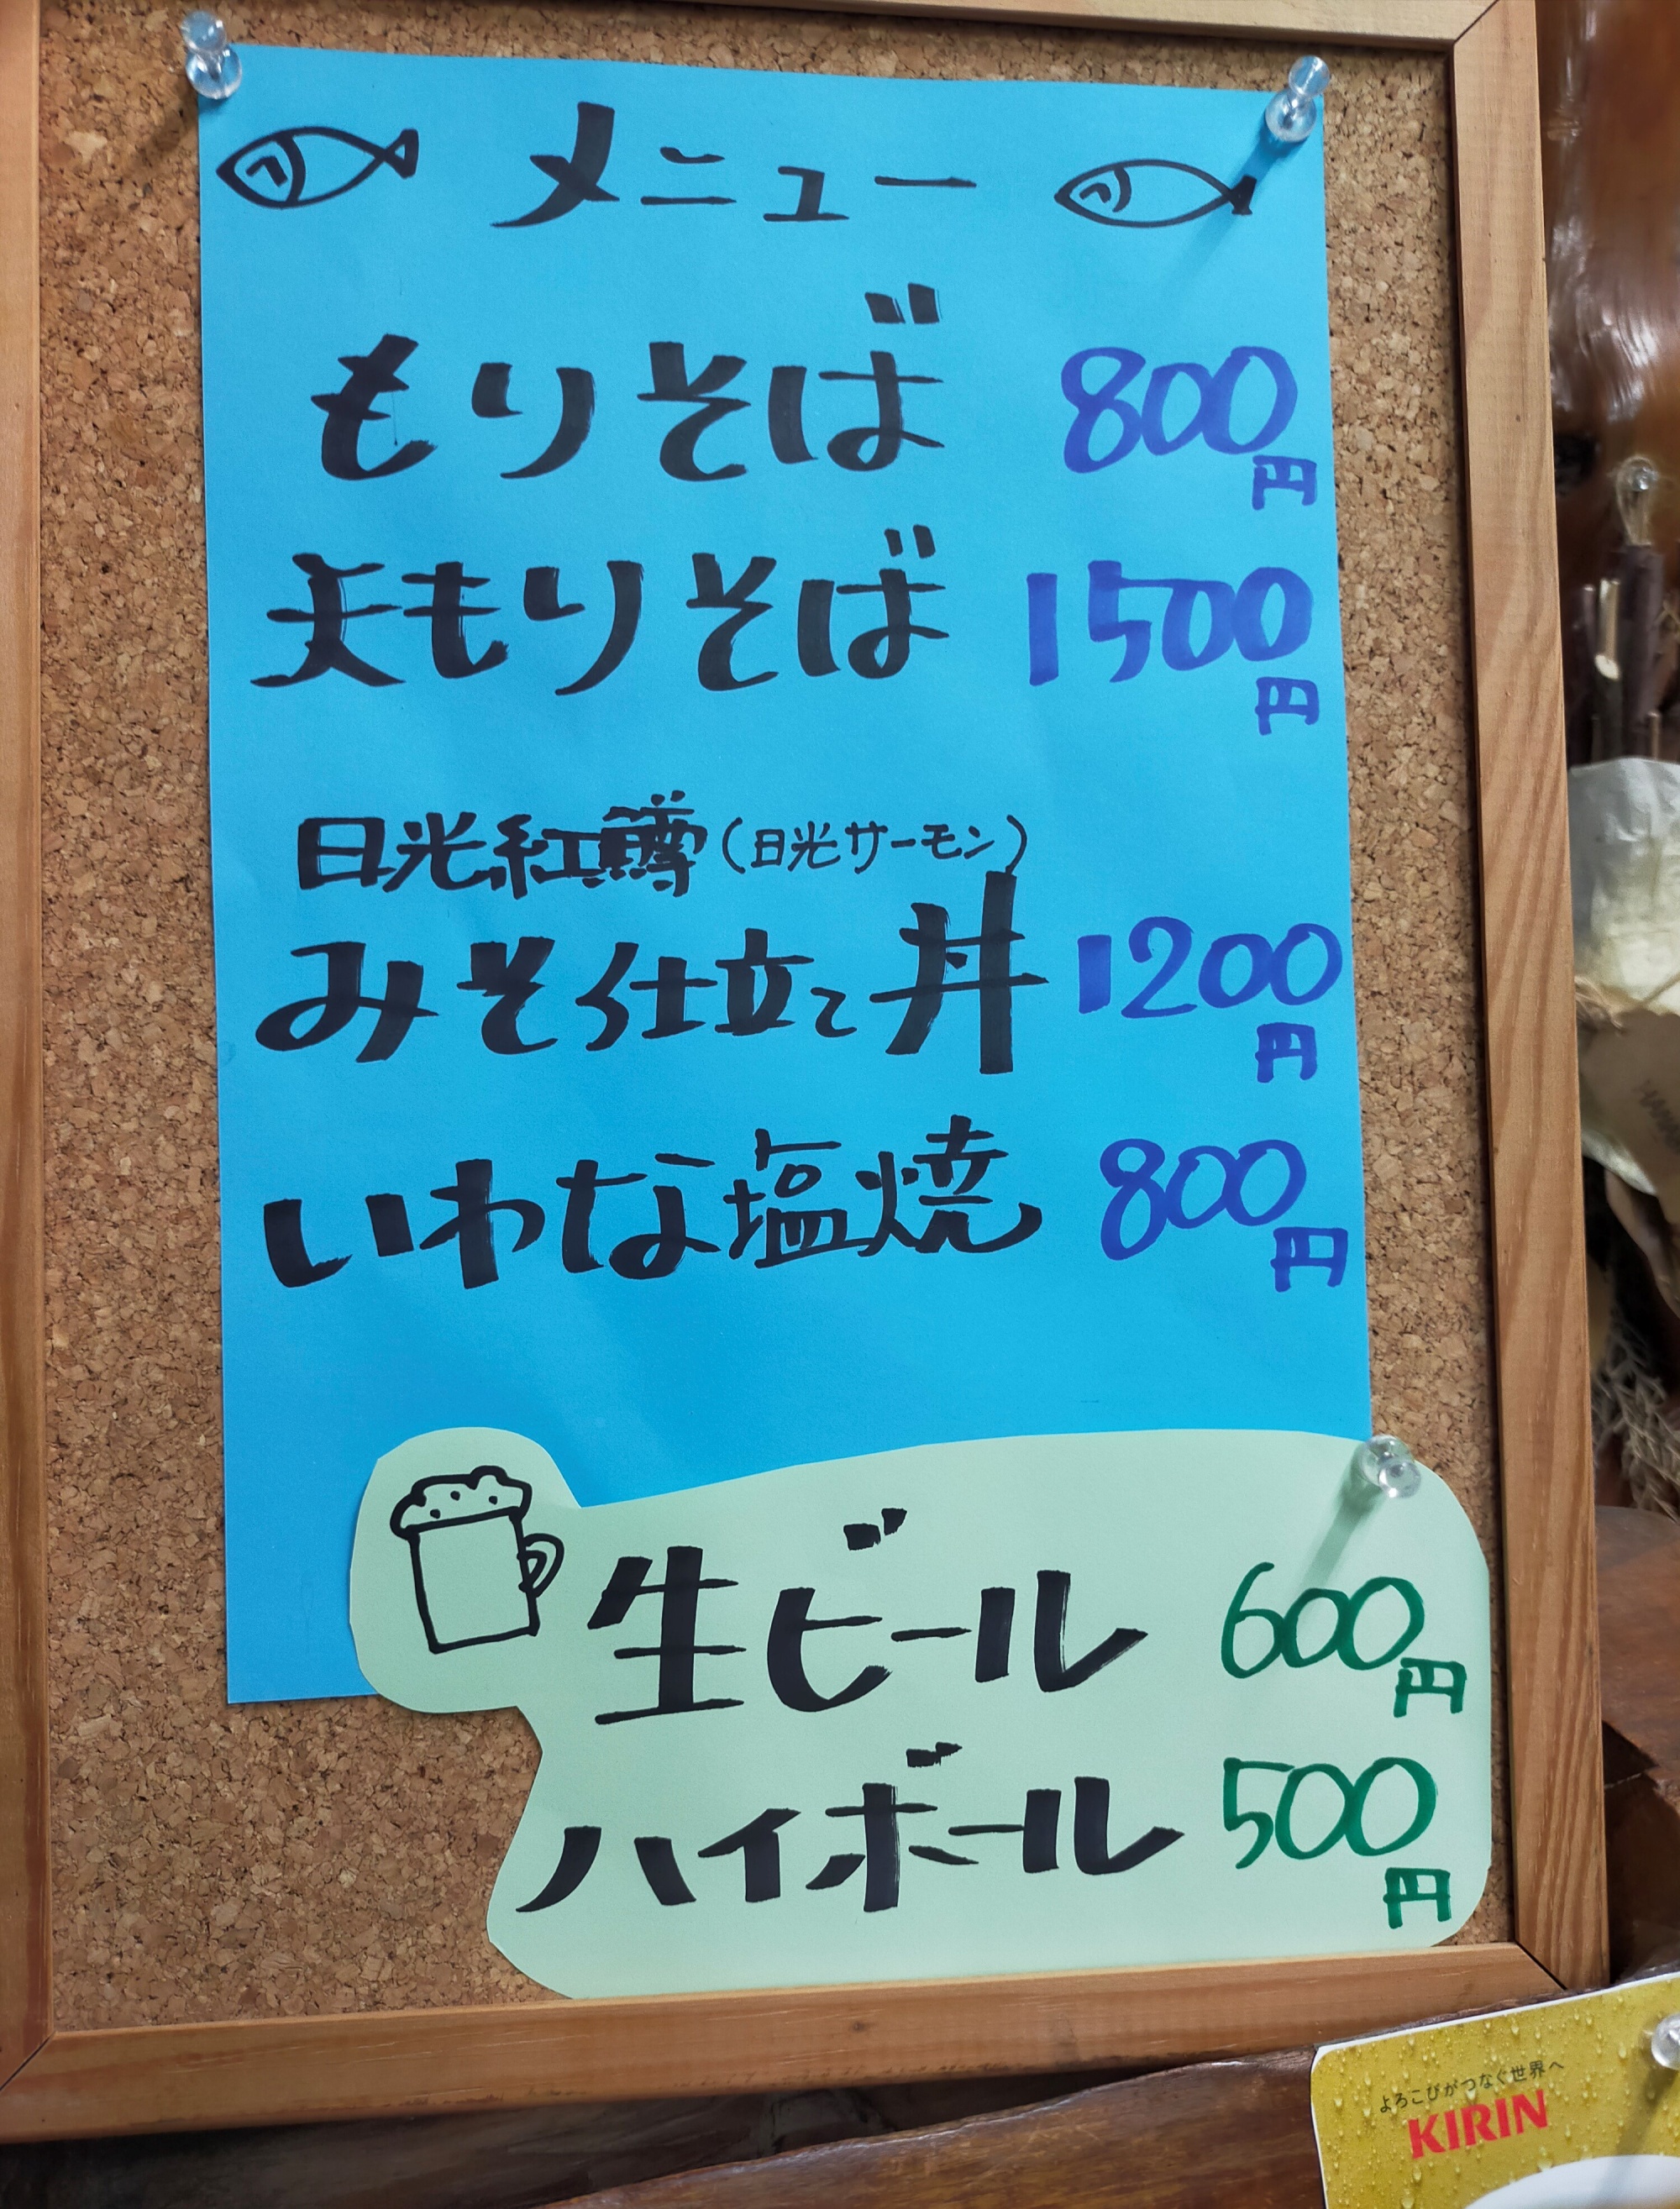 メニュー
もりそば 800円
天もりそば 1500円
日光紅鱒(日光サーモン)
みそ仕立て丼 1200円
いわな塩焼 800円
生ビール 600円
ハイボール 500円
よろこびがつなぐ世界へ
KIRIN